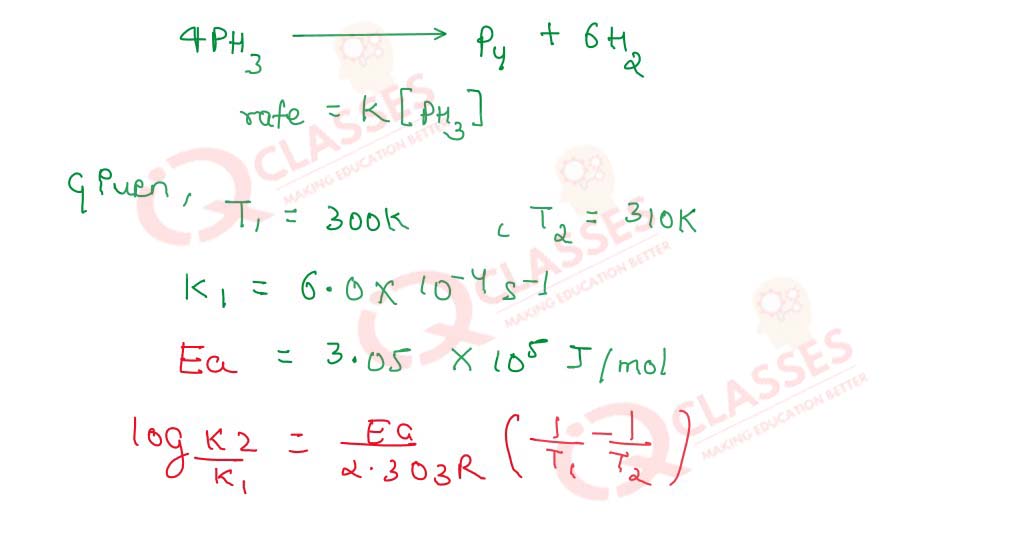 4PH₃ ⟶ P₄ + 6H₂
rate = K [PH₃]
Given, T₁ = 300K , T₂ = 310K
K₁ = 6.0 × 10⁻⁴ s⁻¹
Ea = 3.05 × 10⁵ J/mol
log K2/K₁ = Ea/2.303R (1/T₁ - 1/T₂)
IQ CLASSES
MAKING EDUCATION BETTER
IQ CLASSES
MAKING EDUCATION BETTER
IQ CLASSES
MAKING EDUCATION BETTER